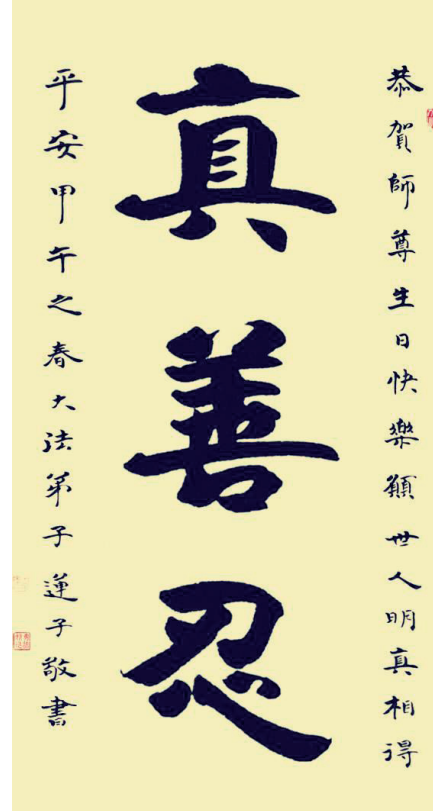 恭賀師尊生日快樂願世人明真相得
真善忍
平安甲午之春大法弟子蓮子敬書